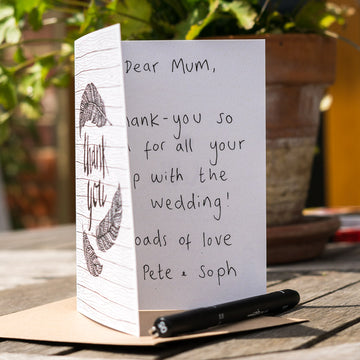 thank
you
Dear Mum,
hank-you so
for all your
p with the
wedding!
oads of love
Pete & Soph